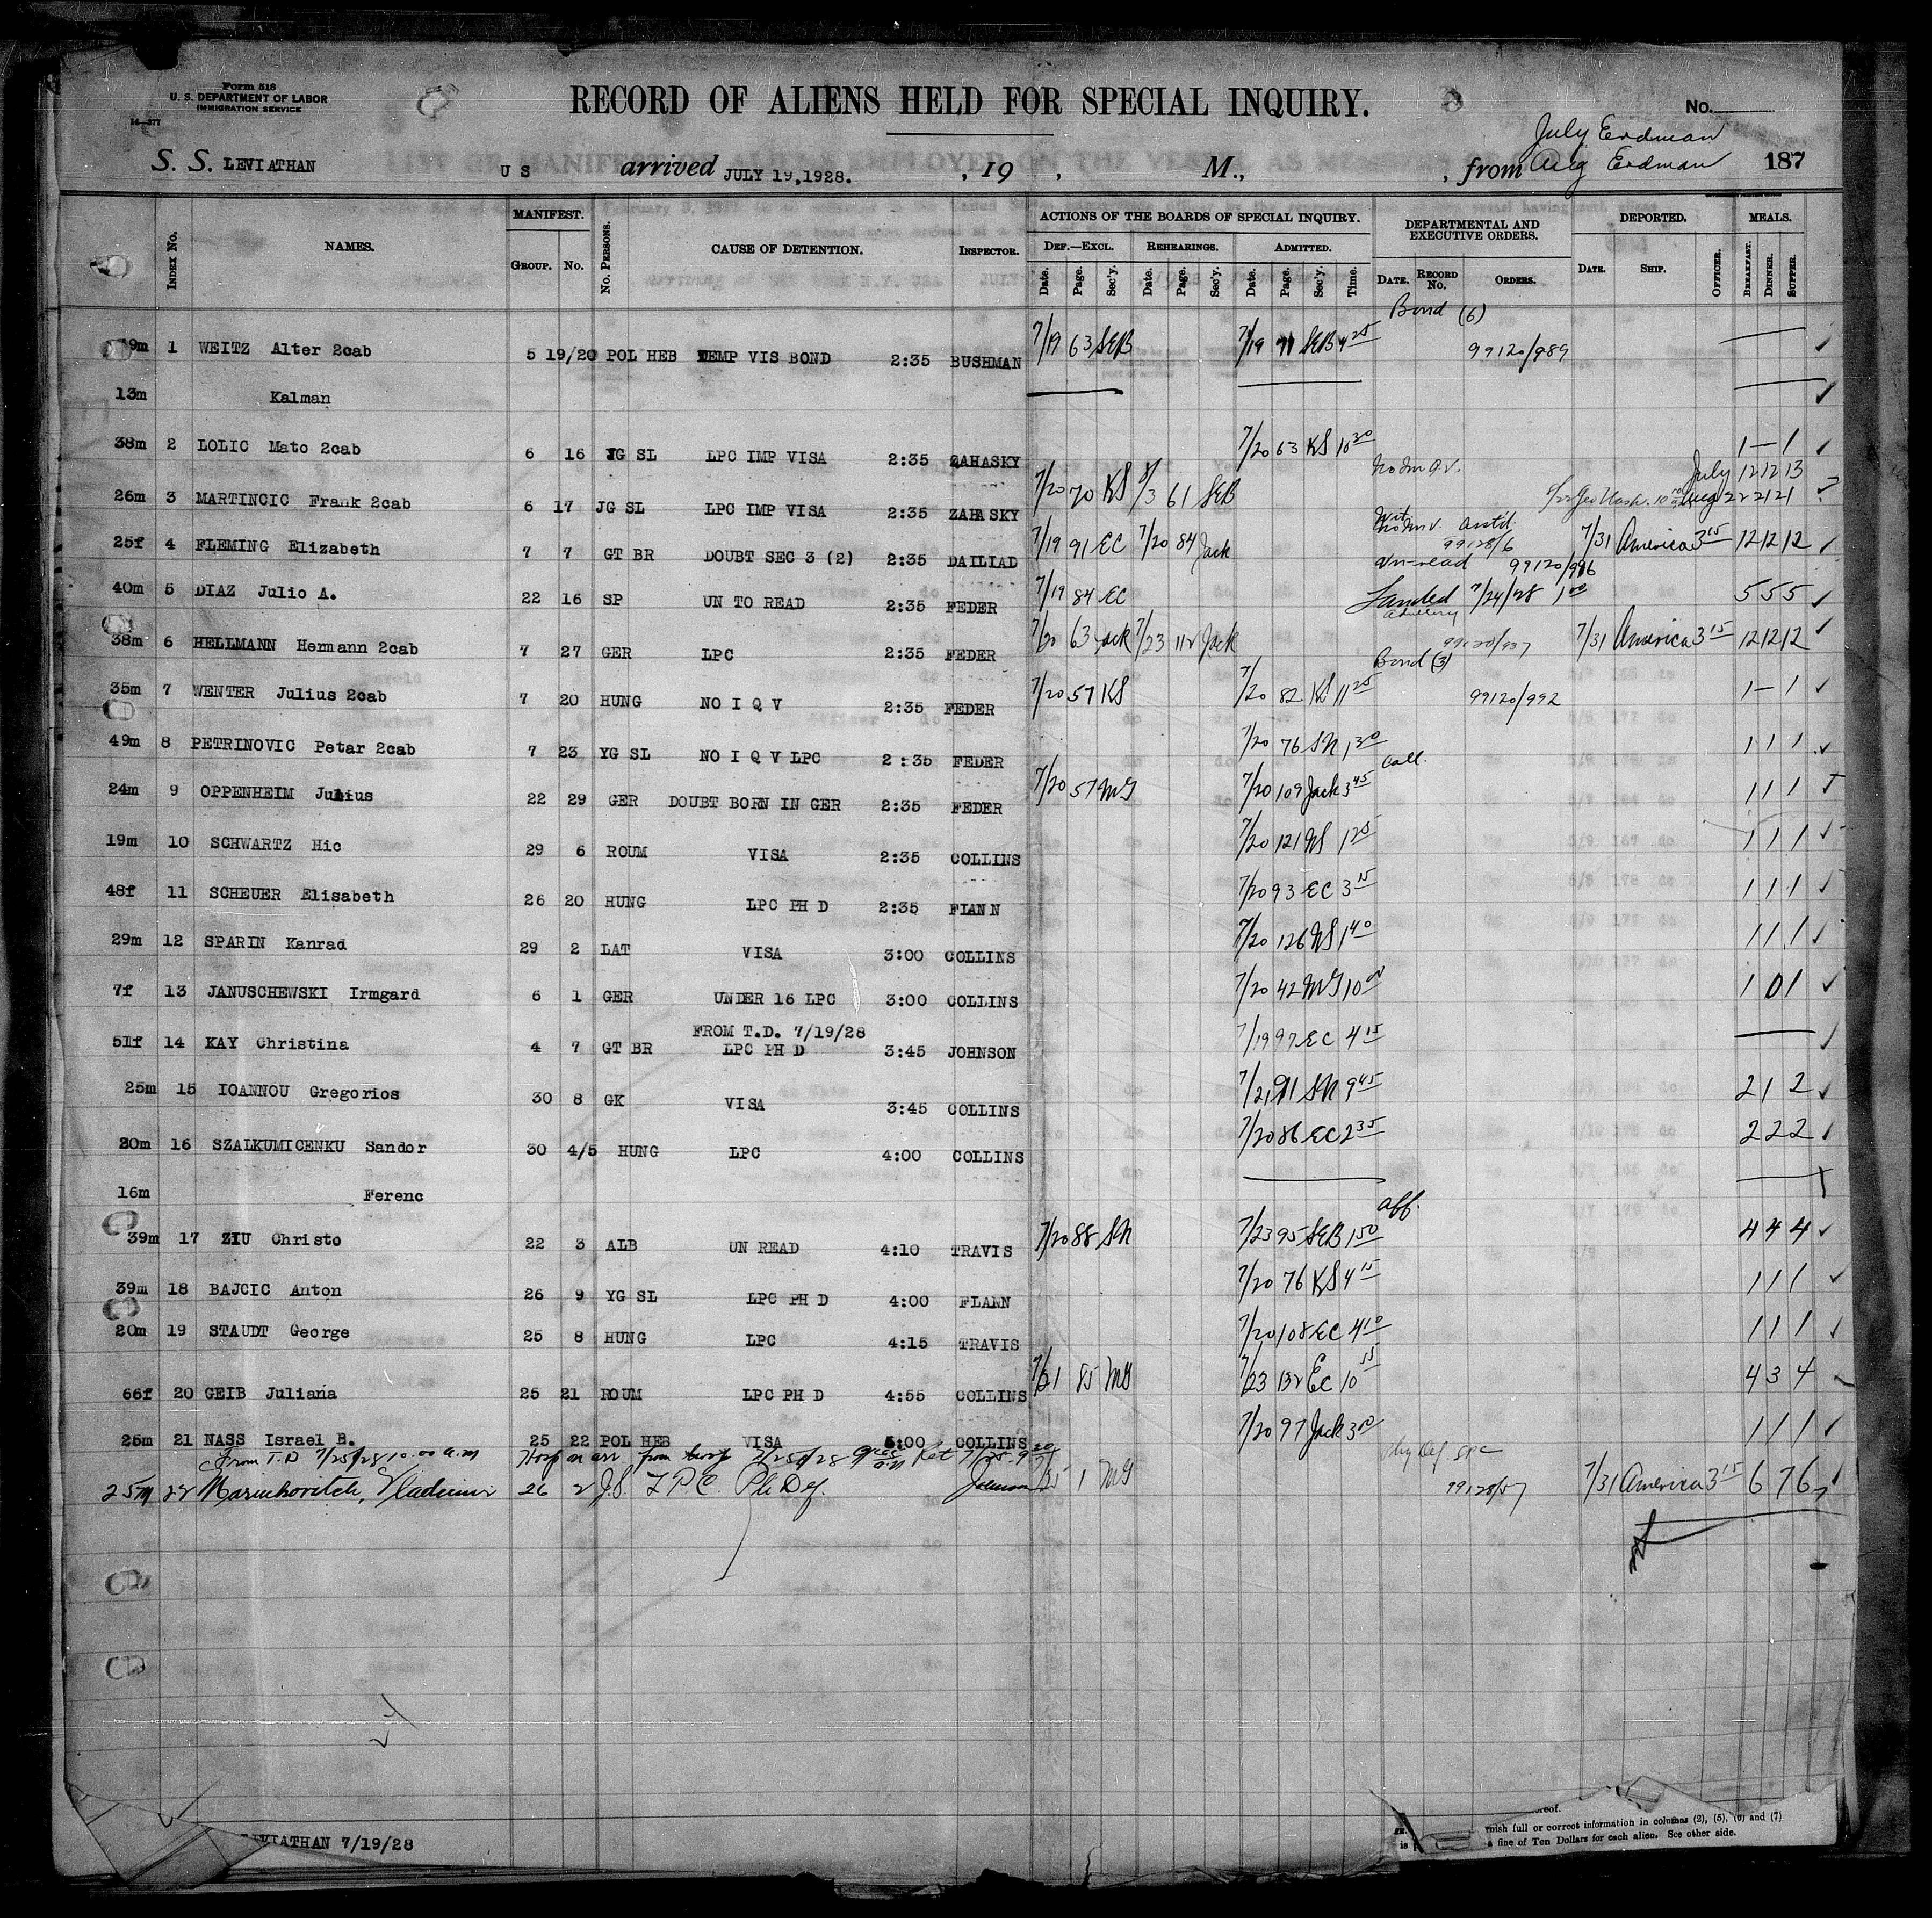 Form 518
U. S. DEPARTMENT OF LABOR
IMMIGRATION SERVICE
14—377
RECORD OF ALIENS HELD FOR SPECIAL INQUIRY.
No.
July Erdman
S. S. LEVIATHAN U S arrived JULY 19,1928. , 19 , M., , from Aug Erdman 187
INDEX No. NAMES. MANIFEST. GROUP. No. No. PERSONS. CAUSE OF DETENTION. INSPECTOR. ACTIONS OF THE BOARDS OF SPECIAL INQUIRY. DEF.—EXCL. Date. Page. Sec'y. REHEARINGS. Date. Page. Sec'y. ADMITTED. Date. Page. Sec'y. Time. DEPARTMENTAL AND EXECUTIVE ORDERS. DATE. RECORD No. ORDERS. DEPORTED. DATE. SHIP. OFFICER. MEALS. BREAKFAST. DINNER. SUPPER.
Bond (6)
1 WEITZ Alter 2cab 5 19/20 POL HEB TEMP VIS BOND 2:35 BUSHMAN 7/19 63 SEB 7/19 71 SEB 4 25 99120/989
13m Kalman
38m 2 LOLIC Mato 2cab 6 16 JG SL LPC IMP VISA 2:35 ZAHASKY 7/20 63 KS 10 30 1 – 1
July 12 12 13
26m 3 MARTINCIC Frank 2cab 6 17 JG SL LPC IMP VISA 2:35 ZAHASKY 7/20 70 KS 8/3 61 SEB Aug 22 21 21
25f 4 FLEMING Elizabeth 7 7 GT BR DOUBT SEC 3 (2) 2:35 DAILIAD 7/19 91 EC 7/20 84 Jack 99128/6 7/31 America 3 15 12 12 12
99120/996
40m 5 DIAZ Julio A. 22 16 SP UN TO READ 2:35 FEDER 7/19 84 EC Landed 7/24/28 1 00 5 5 5
38m 6 HELLMANN Hermann 2cab 7 27 GER LPC 2:35 FEDER 7/20 63 Jack 7/23 112 Jack 99120/937 7/31 America 3 15 12 12 12
Bond (3)
35m 7 WENTER Julius 2cab 7 20 HUNG NO I Q V 2:35 FEDER 7/20 57 KS 7/20 82 KS 11 25 99120/992 1 – 1
49m 8 PETRINOVIC Petar 2cab 7 23 YG SL NO I Q V LPC 2:35 FEDER 7/20 76 SN 1 30 1 1 1
Call.
24m 9 OPPENHEIM Julius 22 29 GER DOUBT BORN IN GER 2:35 FEDER 7/20 57 MG 7/20 109 Jack 3 45 1 1 1
19m 10 SCHWARTZ Hic 29 6 ROUM VISA 2:35 COLLINS 7/20 121 WS 1 25 1 1 1
48f 11 SCHEUER Elisabeth 26 20 HUNG LPC PH D 2:35 FLANN 7/20 93 EC 3 15 1 1 1
29m 12 SPARIN Kanrad 29 2 LAT VISA 3:00 COLLINS 7/20 126 WS 1 40 1 1 1
7f 13 JANUSCHEWSKI Irmgard 6 1 GER UNDER 16 LPC 3:00 COLLINS 7/20 42 MG 10 00 1 0 1
FROM T.D. 7/19/28
51f 14 KAY Christina 4 7 GT BR LPC PH D 3:45 JOHNSON 7/19 97 EC 4 15
25m 15 IOANNOU Gregorios 30 8 GK VISA 3:45 COLLINS 7/21 91 SN 9 45 2 1 2
20m 16 SZALKUMICENKU Sandor 30 4/5 HUNG LPC 4:00 COLLINS 7/20 86 EC 2 35 2 2 2
16m Ferenc
aff.
39m 17 ZIU Christo 22 3 ALB UN READ 4:10 TRAVIS 7/20 88 SN 7/23 95 SEB 1 50 4 4 4
39m 18 BAJCIC Anton 26 9 YG SL LPC PH D 4:00 FLANN 7/20 76 KS 4 15 1 1 1
20m 19 STAUDT George 25 8 HUNG LPC 4:15 TRAVIS 7/20 108 EC 4 10 1 1 1
66f 20 GEIB Juliana 25 21 ROUM LPC PH D 4:55 COLLINS 7/21 85 MG 7/23 132 EC 10 55 4 3 4
25m 21 NASS Israel B. 25 22 POL HEB VISA 5:00 COLLINS 7/20 97 Jack 3 00 1 1 1
From T.D 7/25/28 10.00 a.m Hosp on arr from hosp 7/25/28
25m 22 Marinkovitch, Vladimir 26 2 J.S. L P C. Ph Def. Johnson 7/25 1 MG 99128/57 7/31 America 3 15 6 7 6
LEVIATHAN 7/19/28
hereof.
nish full or correct information in columns (2), (5), (6) and (7)
a fine of Ten Dollars for each alien. See other side.